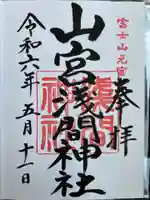 富士山元宮
奉拝
山宮浅間神社
令和六年五月十一日